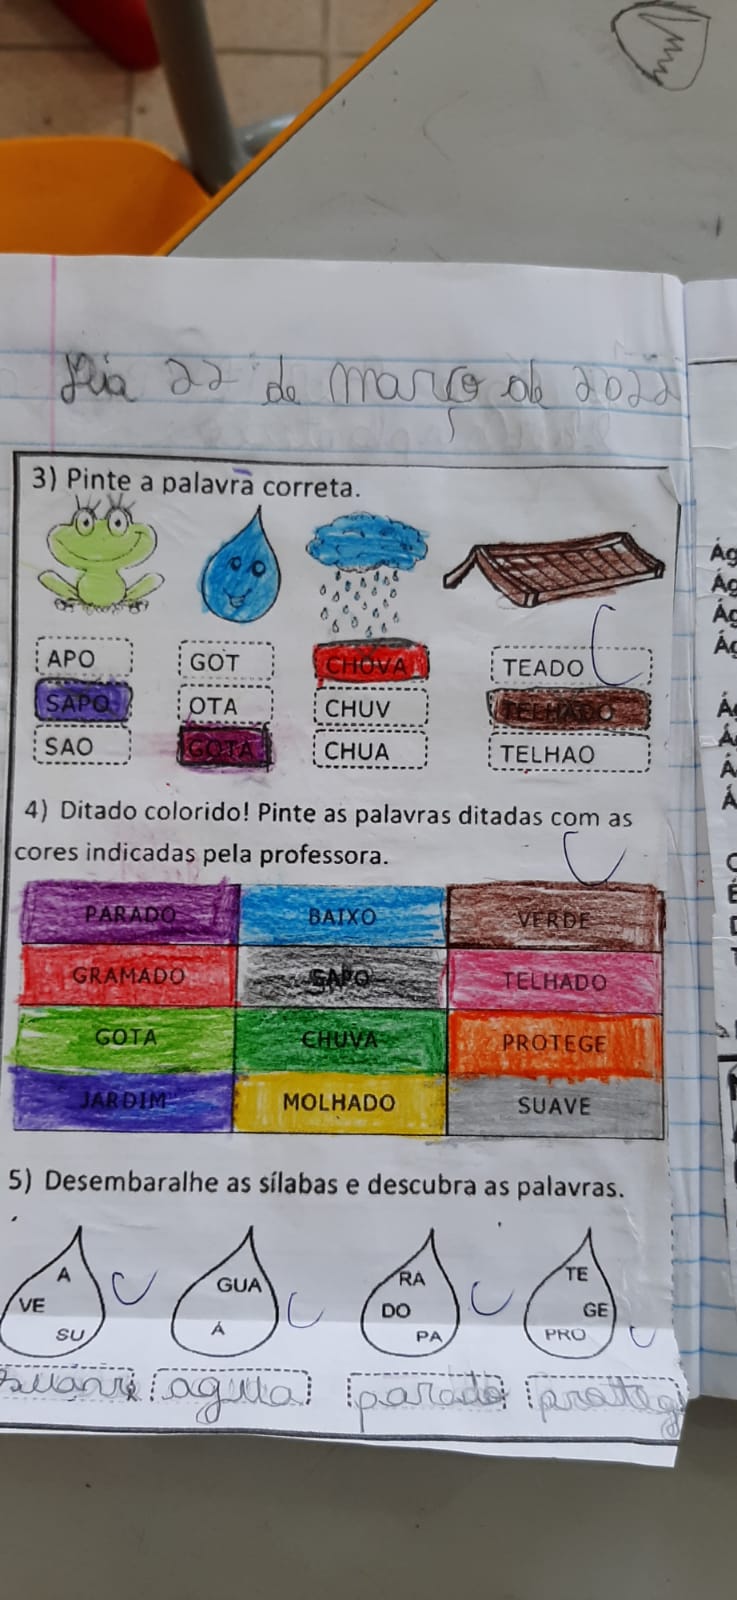 Dia 22 de março de 2022
3) Pinte a palavra correta.
APO GOT CHUVA TEADO
SAPO OTA CHUV TELHADO
SAO GOTA CHUA TELHAO
4) Ditado colorido! Pinte as palavras ditadas com as
cores indicadas pela professora.
PARADO BAIXO VERDE
GRAMADO SAPO TELHADO
GOTA CHUVA PROTEGE
JARDIM MOLHADO SUAVE
5) Desembaralhe as sílabas e descubra as palavras.
A GUA RA TE
VE DO GE
SU Á PA PRO
agua parado
Ág
Ág
Ág
Ág